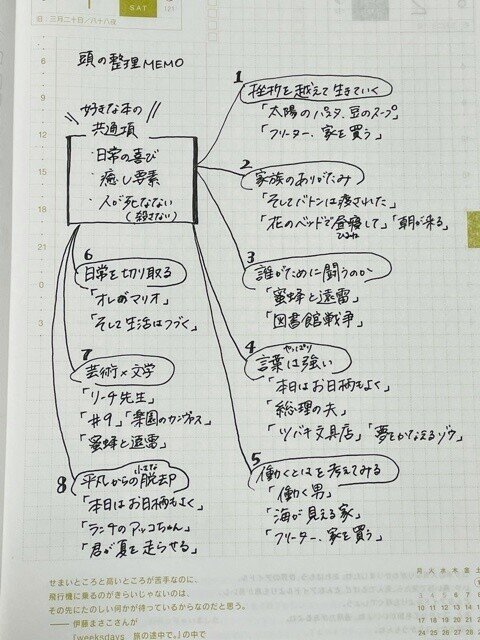 SAT
(2)
日：三月二十日／八十八夜
頭の整理MEMO
好きな本の
共通項
・日常の喜び
・癒し要素
・人が死なない
(殺さない)
1
挫折を越えて生きていく
「太陽のパスタ、豆のスープ」
「フリーター、家を買う」
2
家族のありがたみ
「そしてバトンは渡された」
「花のベッドで昼寝して」「朝が来る」
ひるね
3
誰がために闘うのか
「蜜蜂と遠雷」
「図書館戦争」
4
やっぱり
言葉は強い
「本日はお日柄もよく」
「総理の夫」
「ツバキ文具店」「夢をかなえるゾウ」
5
働くとはを考えてみる
「働く男」
「海が見える家」
「フリーター、家を買う」
6
日常を切り取る
「オレのマリオ」
「そして生活はつづく」
7
芸術×文学
「リーチ先生」
「#9」「楽園のカンヴァス」
「蜜蜂と遠雷」
8
小さな
平凡からの脱却
「本日はお日柄もよく」
「ランチのアッコちゃん」
「君が夏を走らせる」
6
9
12
15
18
21
0
3
せまいところと高いところが苦手なのに、
飛行機に乗るのがきらいじゃないのは、
その先にたのしい何かが待っているからなのだと思う。
—— 伊藤まさこさんが
『weeksdays 旅の途中で。』の中で
月 火 水 木 金 土
3 4 5 6 7 8
10 11 12 13 14 15
17 18 19 20 21 22
24 25 26 27 28 29